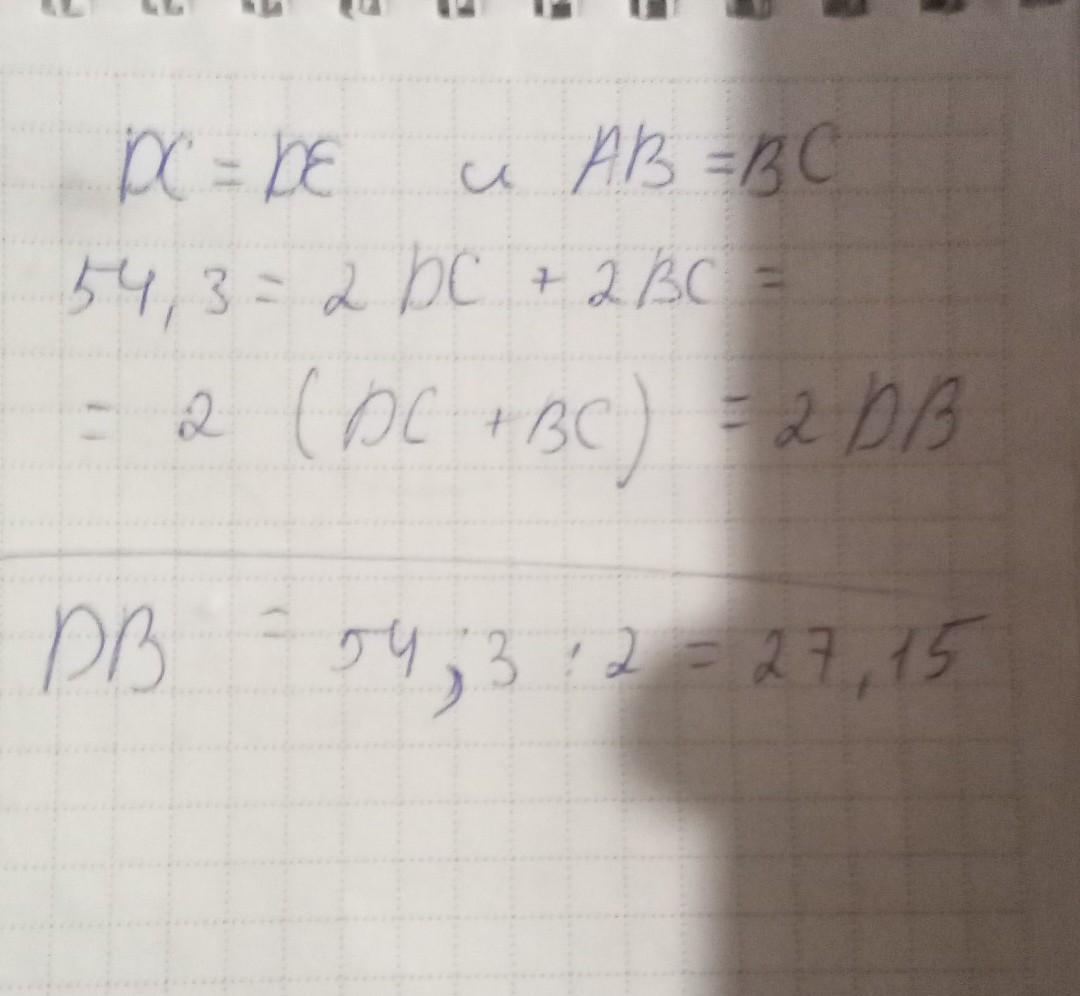 DC = DE и AB = BC
54,3 = 2 DC + 2BC =
= 2 (DC + BC) = 2 DB
DB = 54,3 : 2 = 27,15